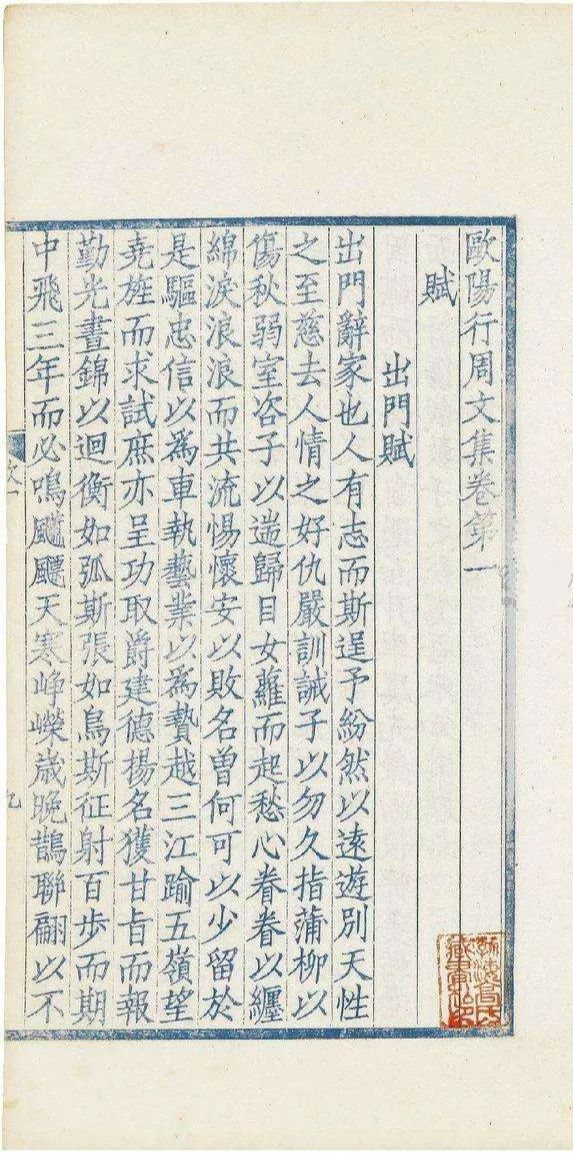 歐陽行周文集卷第一
賦
出門賦
出門辭家也人有志而斯逞予紛然以遠遊別天性
之至慈去人情之好仇嚴訓誡子以勿久指蒲柳以
傷秋弱室咨予以遄歸目女蘿而起愁心眷眷以纏
綿淚浪浪而共流惕懷安以敗名曽何可以少留於
是驅忠信以爲車執藝業以爲贄越三江踰五嶺望
堯旌而求試庶亦呈功取爵建德揚名獲甘旨而報
勤光晝錦以迴衡如弧斯張如鳥斯征射百步而期
中飛三年而必鳴飈飈天寒崢嶸歳晚鵲聯翩以不